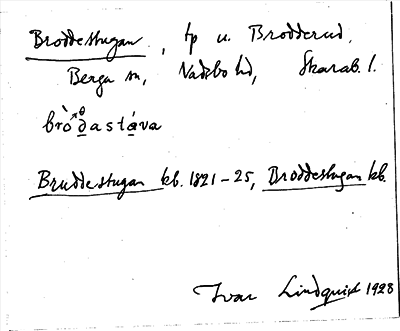 Broddestugan, tp u. Brodderud,
Berga sn, Vadsbo hd, Skarab. l.
brò̀ðastáva
Bruddestugan kb. 1821-25, Broddestugan kb.
Ivar Lindquist 1928